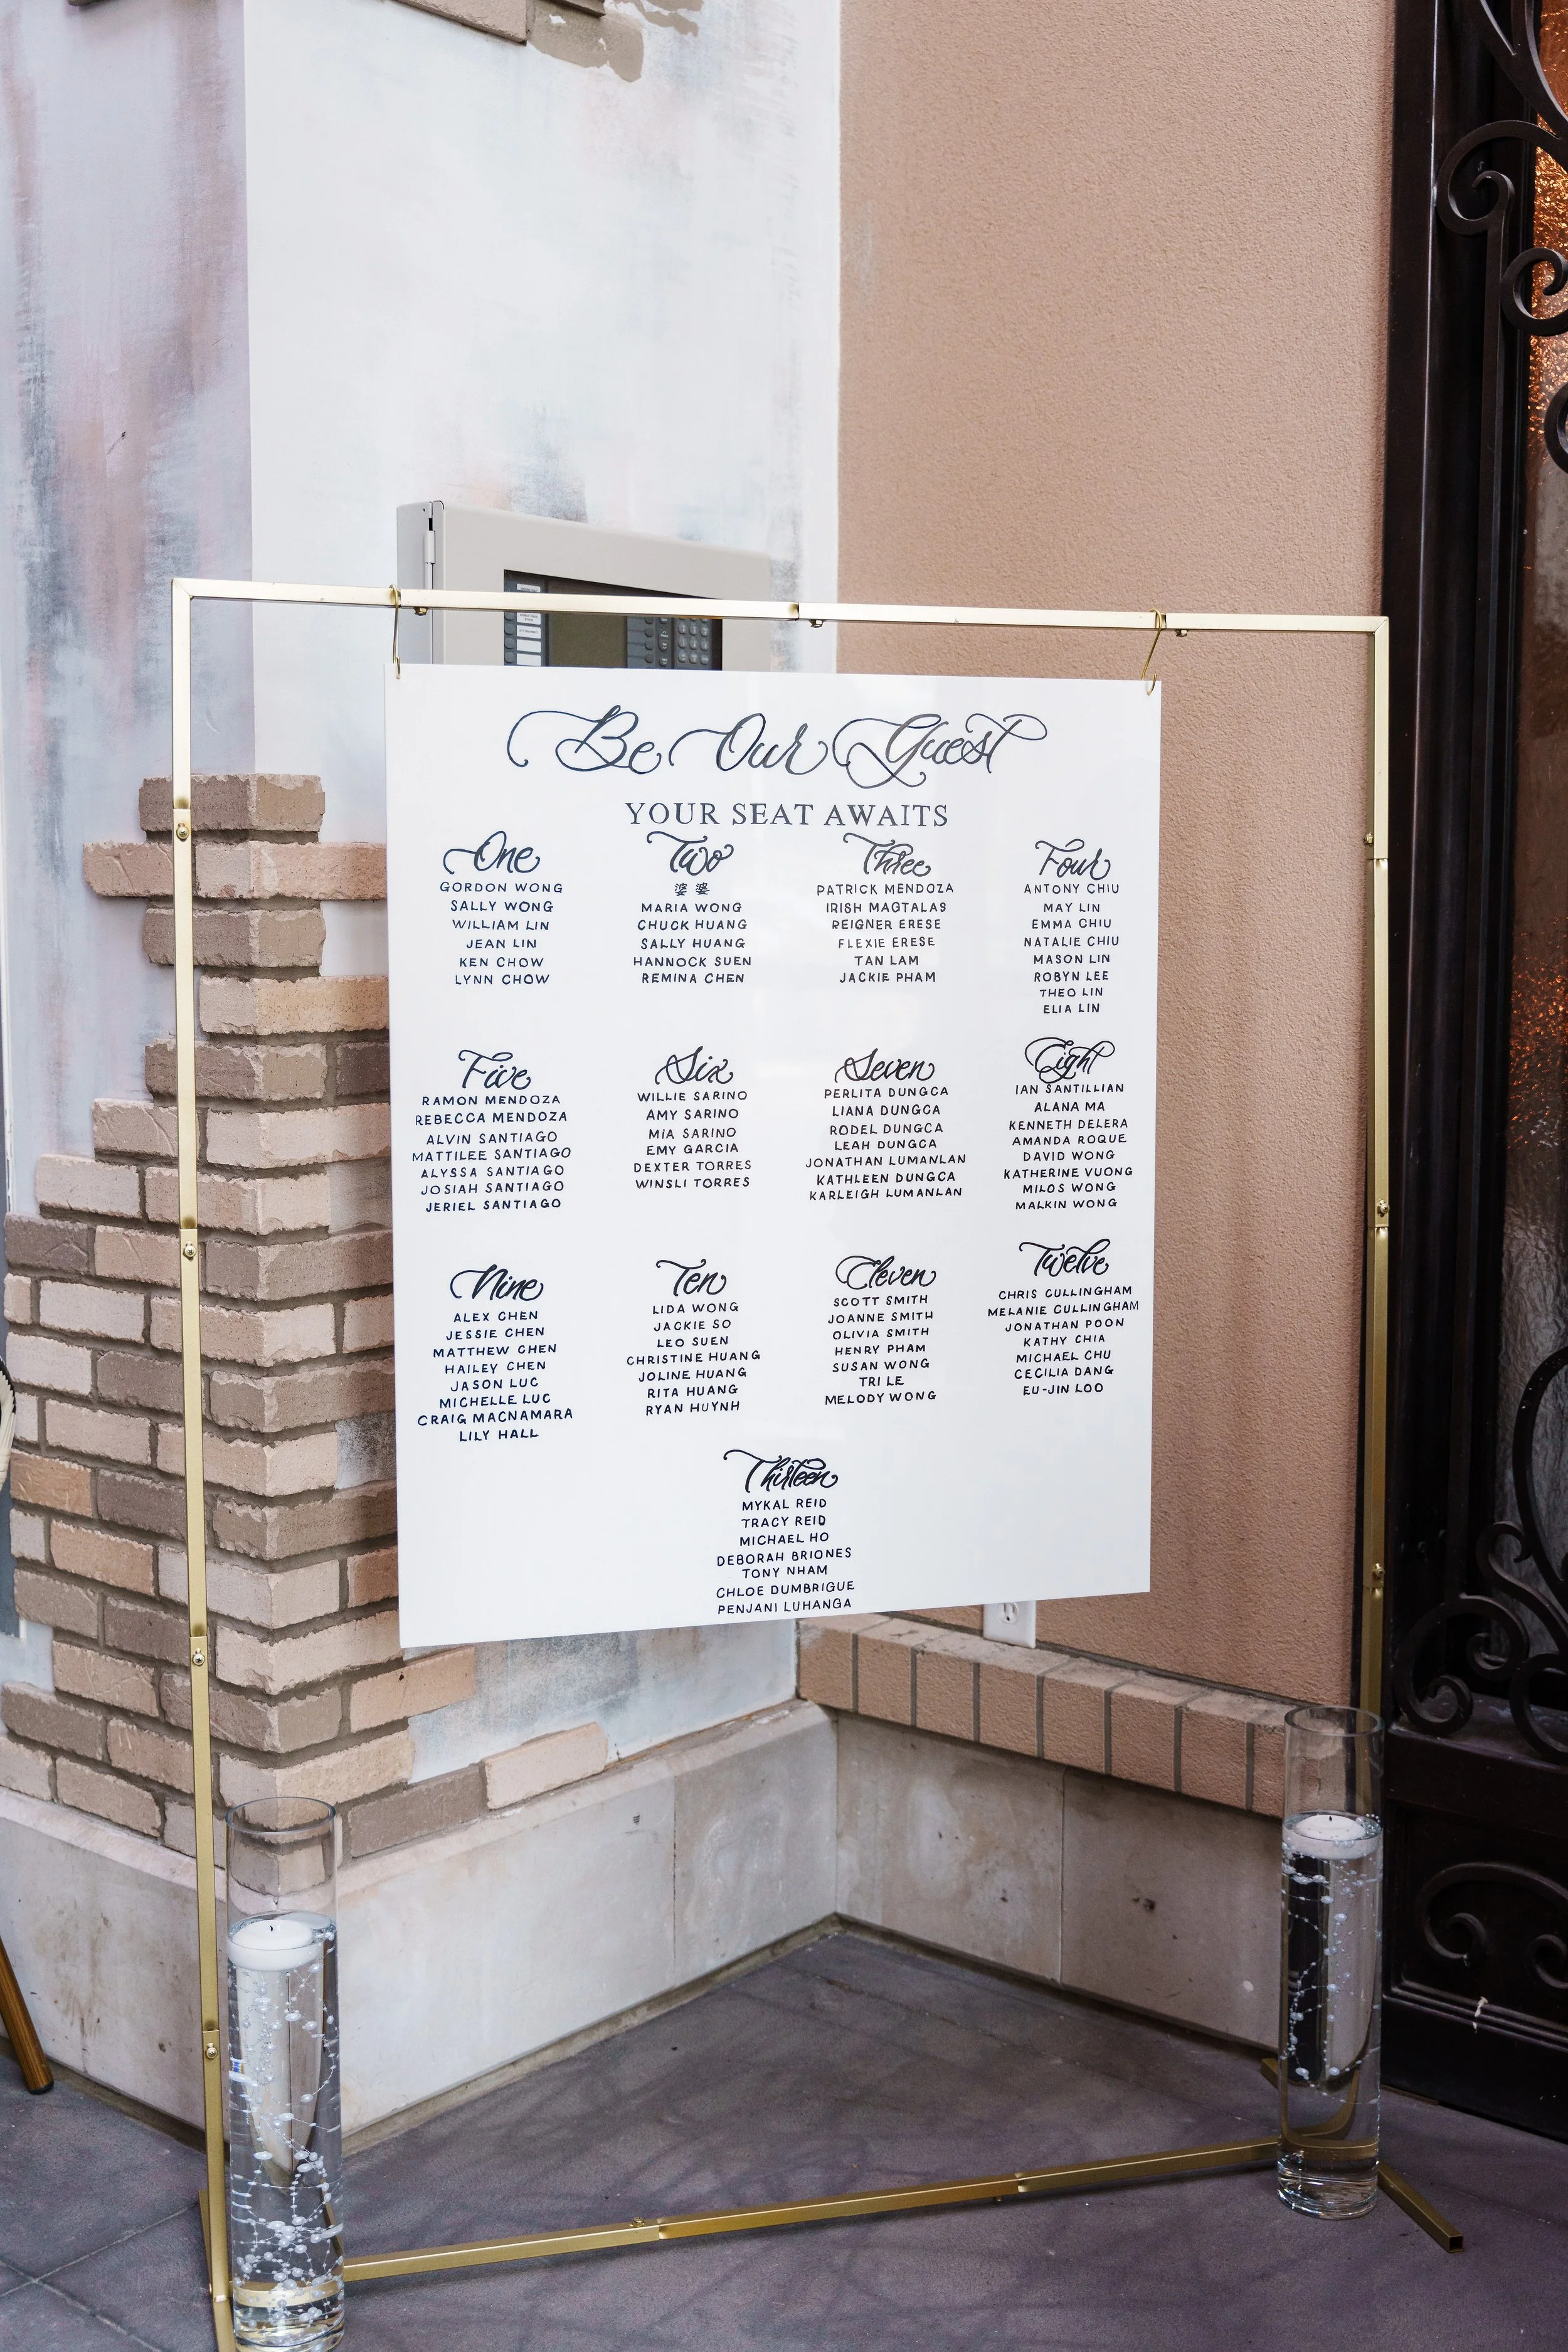 Be Our Guest
YOUR SEAT AWAITS
One
GORDON WONG
SALLY WONG
WILLIAM LIN
JEAN LIN
KEN CHOW
LYNN CHOW
Two
婆 婆
MARIA WONG
CHUCK HUANG
SALLY HUANG
HANNOCK SUEN
REMINA CHEN
Three
PATRICK MENDOZA
IRISH MAGTALAS
REIGNER ERESE
FLEXIE ERESE
TAN LAM
JACKIE PHAM
Four
ANTONY CHIU
MAY LIN
EMMA CHIU
NATALIE CHIU
MASON LIN
ROBYN LEE
THEO LIN
ELIA LIN
Five
RAMON MENDOZA
REBECCA MENDOZA
ALVIN SANTIAGO
MATTILEE SANTIAGO
ALYSSA SANTIAGO
JOSIAH SANTIAGO
JERIEL SANTIAGO
Six
WILLIE SARINO
AMY SARINO
MIA SARINO
EMY GARCIA
DEXTER TORRES
WINSLI TORRES
Seven
PERLITA DUNGCA
LIANA DUNGCA
RODEL DUNGCA
LEAH DUNGCA
JONATHAN LUMANLAN
KATHLEEN DUNGCA
KARLEIGH LUMANLAN
Eight
IAN SANTILLIAN
ALANA MA
KENNETH DELERA
AMANDA ROQUE
DAVID WONG
KATHERINE VUONG
MILOS WONG
MALKIN WONG
Nine
ALEX CHEN
JESSIE CHEN
MATTHEW CHEN
HAILEY CHEN
JASON LUC
MICHELLE LUC
CRAIG MACNAMARA
LILY HALL
Ten
LIDA WONG
JACKIE SO
LEO SUEN
CHRISTINE HUANG
JOLINE HUANG
RITA HUANG
RYAN HUYNH
Eleven
SCOTT SMITH
JOANNE SMITH
OLIVIA SMITH
HENRY PHAM
SUSAN WONG
TRI LE
MELODY WONG
Twelve
CHRIS CULLINGHAM
MELANIE CULLINGHAM
JONATHAN POON
KATHY CHIA
MICHAEL CHU
CECILIA DANG
EU-JIN LOO
Thirteen
MYKAL REID
TRACY REID
MICHAEL HO
DEBORAH BRIONES
TONY NHAM
CHLOE DUMBRIGUE
PENJANI LUHANGA